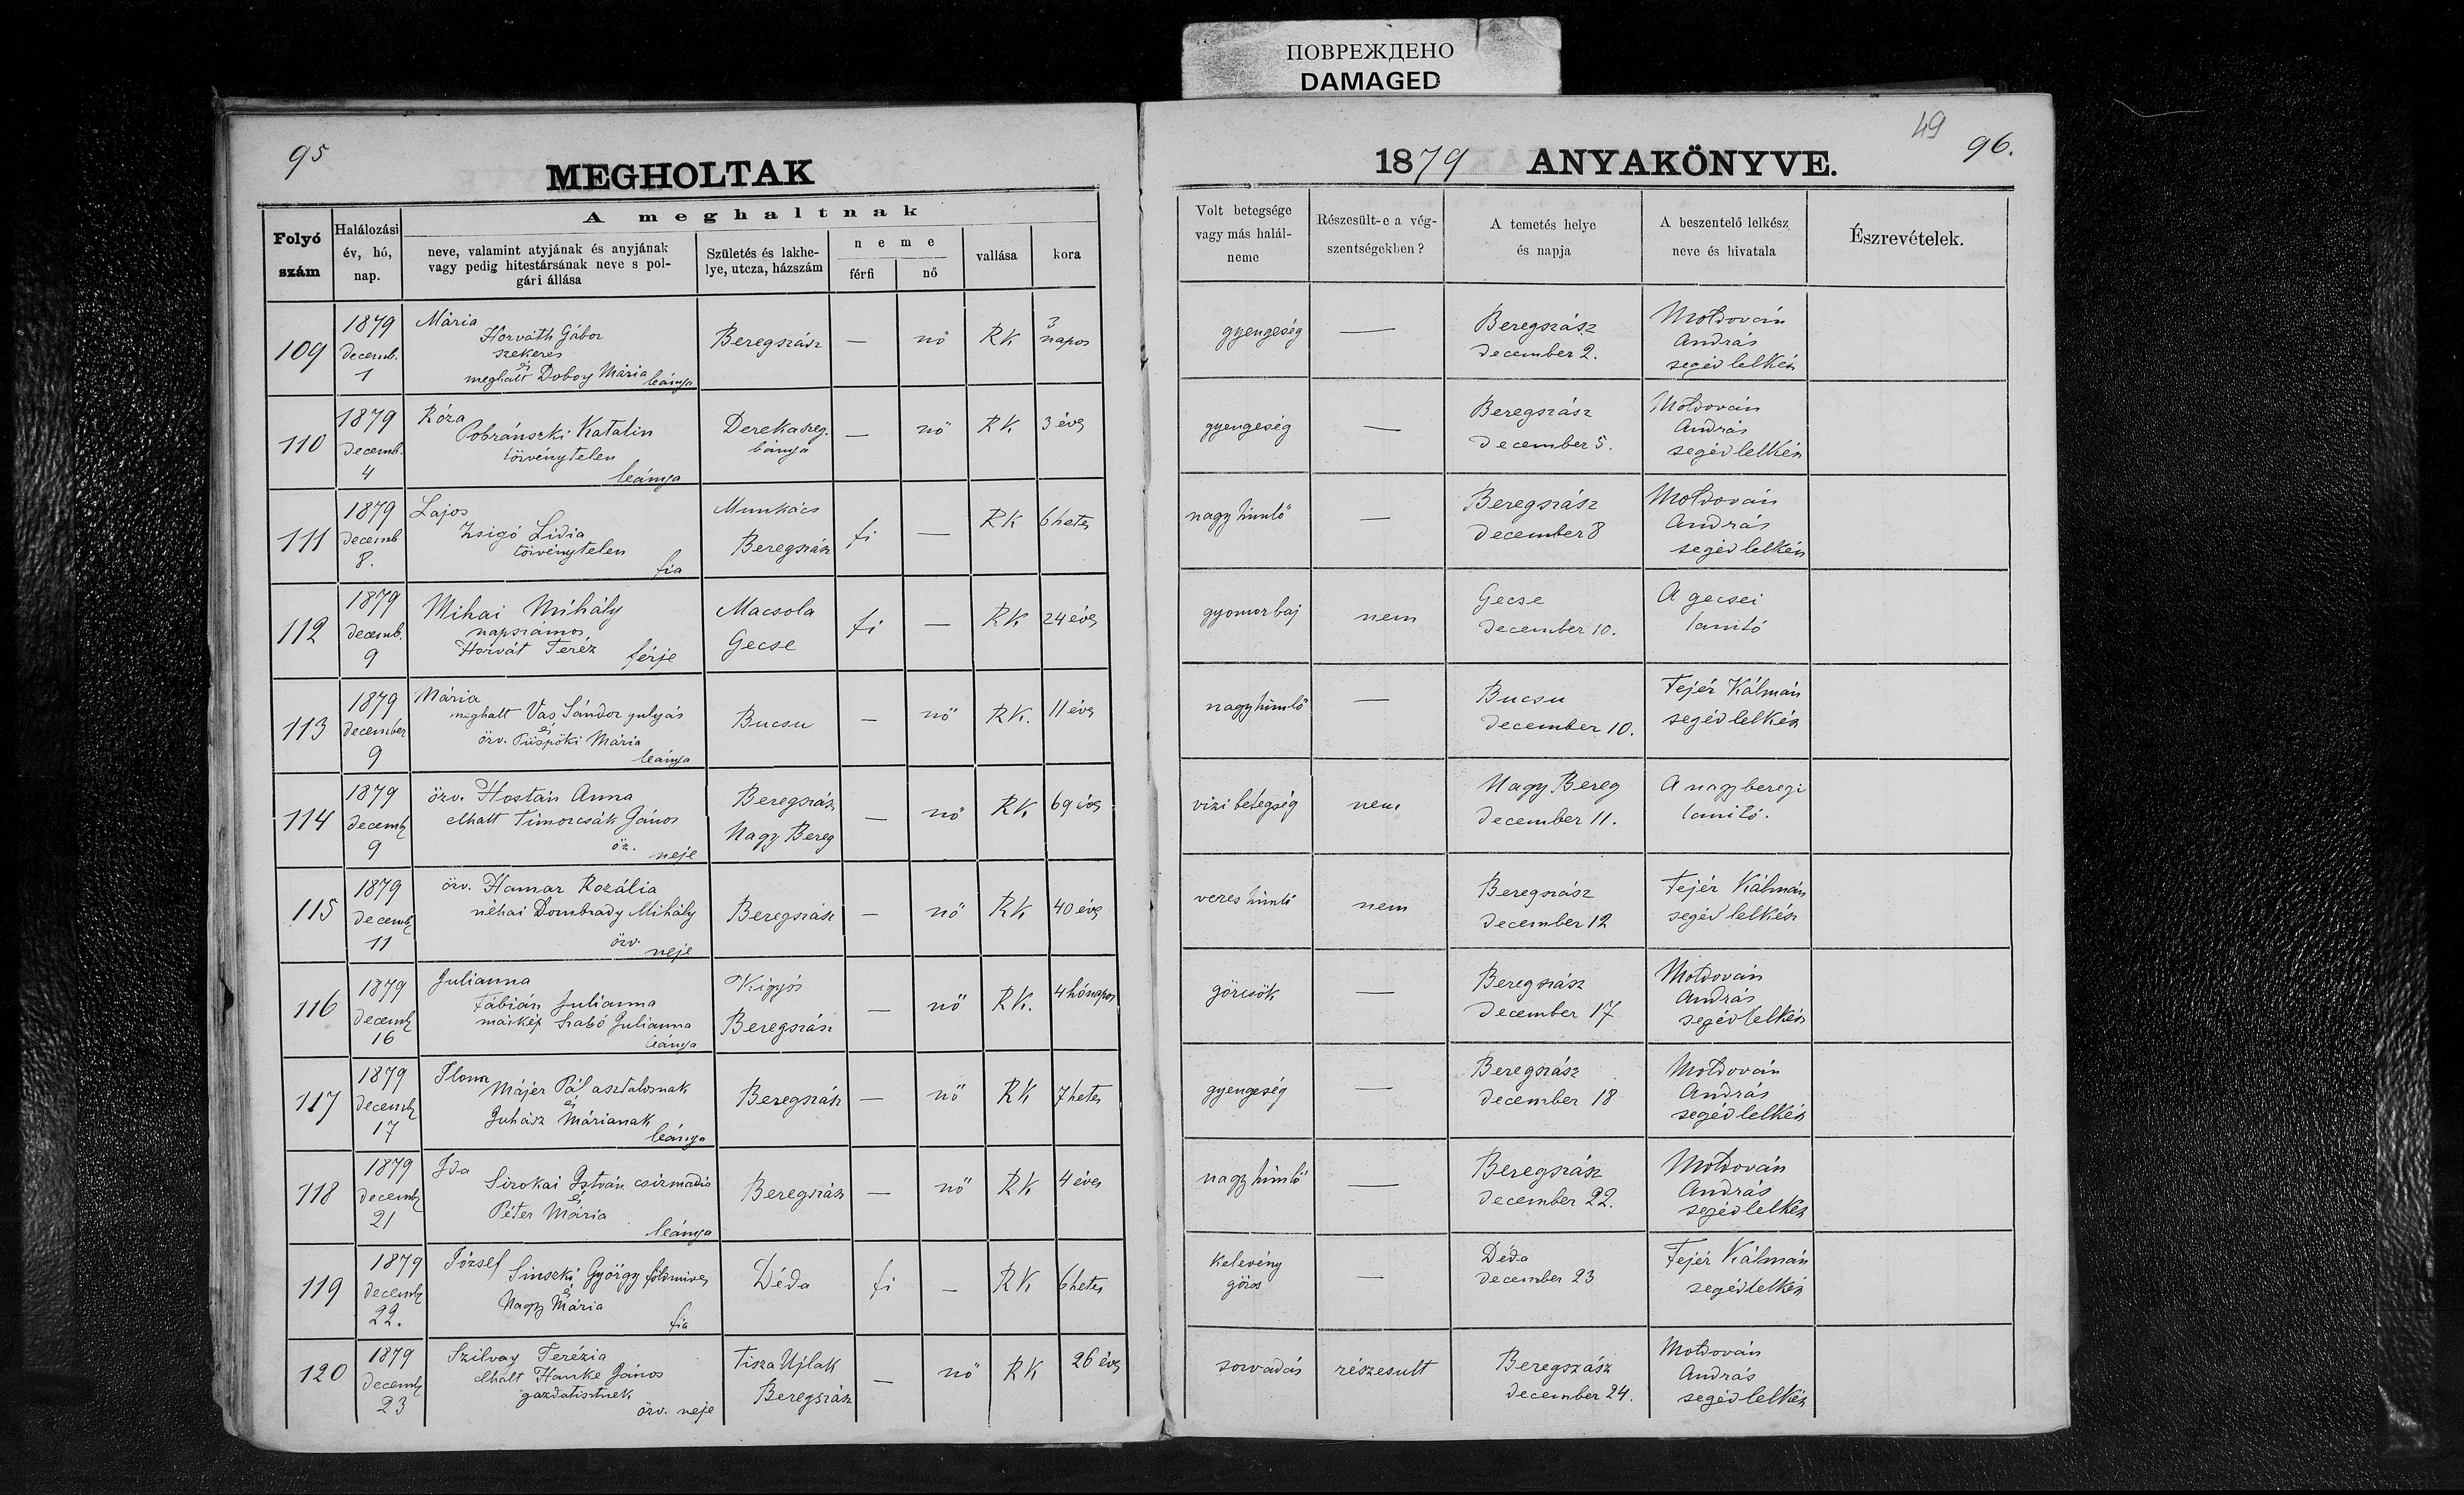 ПОВРЕЖДЕНО
DAMAGED
95
MEGHOLTAK
Folyó szám
Halálozási év, hó, nap.
A meghaltnak
neve, valamint atyjának és anyjának vagy pedig hitestársának neve s polgári állása
Születés és lakhelye, utcza, házszám
neme
férfi
nő
vallása
kora
109
1879 decemb. 1
Mária
Horváth Gábor
szekeres
és
meghalt Doboy Mária leánya
Beregszász
—
nő
RK
3 napos
110
1879 decemb. 4
Róza
Pobránszki Katalin
törvénytelen
leánya
Derekaszeg.
bánya
—
nő
RK
3 éves
111
1879 decemb 8.
Lajos
Zsigó Lidia
törvénytelen
fia
Munkács
Beregszász
fi
—
RK
6 hetes
112
1879 decemb. 9
Mihai Mihály
napszámos
Horvát Teréz férje
Macsola
Gecse
fi
—
RK
24 éves
113
1879 december 9
Mária
meghalt Vas Sándor gulyás
és
özv. Püspöki Mária
leánya
Bucsu
—
nő
RK.
11 éves
114
1879 decemb 9
özv. Hostán Anna
elhalt Timorcsák János
öz. neje
Beregszász
Nagy Bereg
—
nő
RK
69 éves
115
1879 decemb 11
özv. Hamar Rozália
néhai Dombrady Mihály
özv. neje
Beregszász
—
nő
RK
40 éves
116
1879 decemb 16
Julianna
Fábián Julianna
máskép Szabó Julianna
leánya
Kigyós
Beregszász
—
nő
RK.
4 hónapos
117
1879 decemb 17
Ilona
Májer Pál asztalosnak
és
Juhász Máriának
leánya
Beregszász
—
nő
RK
7 hetes
118
1879 decemb 21
Ida
Sirokai István csizmadia
és
Péter Mária
leánya
Beregszász
—
nő
RK
4 éves
119
1879 decemb 22.
József
Sinszki György földmives
és
Nagy Mária
fia
Déda
fi
—
RK
6 hetes
120
1879 decemb 23
Szilvay Terézia
elhalt Hanke János
gazdatisztnek
özv. neje
Tisza Ujlak
Beregszász
—
nő
RK
26 éves
49
96.
1879 ANYAKÖNYVE.
Volt betegsége vagy más halálneme
Részesült-e a végszentségekben?
A temetés helye és napja
A beszentelő lelkész neve és hivatala
Észrevételek.
gyengeség
—
Beregszász
december 2.
Moldován
András
segéd lelkész
gyengeség
—
Beregszász
december 5.
Moldován
András
segéd lelkész
nagy himlő
—
Beregszász
december 8
Moldován
András
segéd lelkész
gyomor baj
nem
Gecse
december 10.
A gecsei
tanitó
nagy himlő
—
Bucsu
december 10.
Fejér Kálmán
segéd lelkész
vizi betegség
nem
Nagy Bereg
december 11.
A nagy beregi
tanitó.
veres himlő
nem
Beregszász
december 12
Fejér Kálmán
segéd lelkész
görcsök
—
Beregszász
december 17
Moldován
András
segéd lelkész
gyengeség
—
Beregszász
december 18
Moldován
András
segéd lelkész
nagy himlő
—
Beregszász
december 22.
Moldován
András
segéd lelkész
Kelevény
görcs
—
Déda
december 23
Fejér Kálmán
segéd lelkész
sorvadás
részesült
Beregszász
december 24.
Moldován
András
segéd lelkész